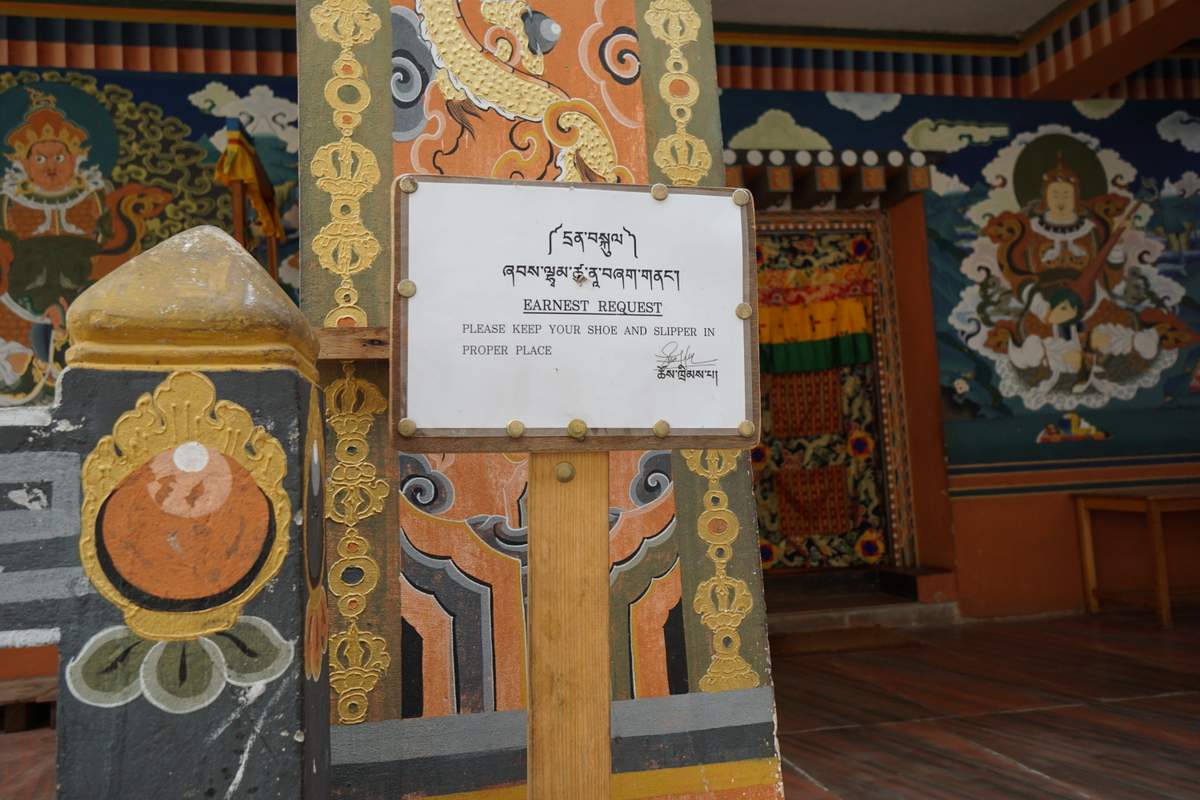 ༼དྲན་བསྐུལ༽
ཞབས་ལྷྭམ་ཚུ་ནཱ་བཞག་གནང་།
EARNEST REQUEST
PLEASE KEEP YOUR SHOE AND SLIPPER IN
PROPER PLACE
ཆོས་ཁྲིམས་པ།